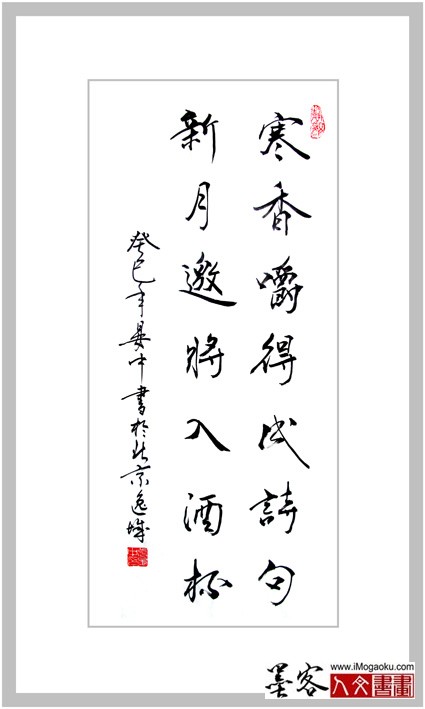 寒香嚼得成詩句
新月邀將入酒杯
癸巳年晏中書於北京逸城
墨客
www.iMogaoku.com
人文書畫